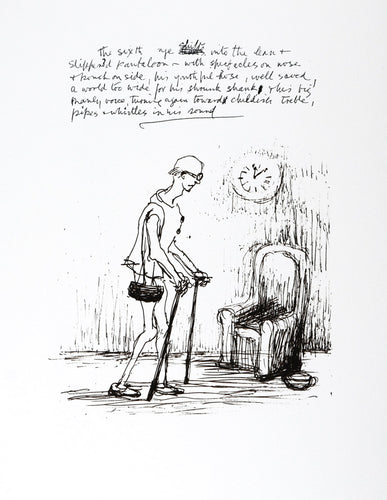 The sixth age into the lean +
slippered pantaloon – with spectacles on nose
+ pouch on side, his youthful hose, well saved
a world too wide for his shrunk shank, + his big
manly voice, turning again toward childish treble,
pipes + whistles in his sound